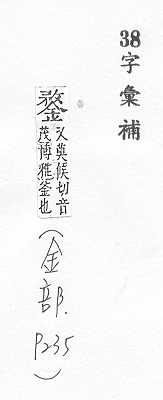 38字彙補
鍪又莫候切音
茂博雅釜也
(金部.
P235)